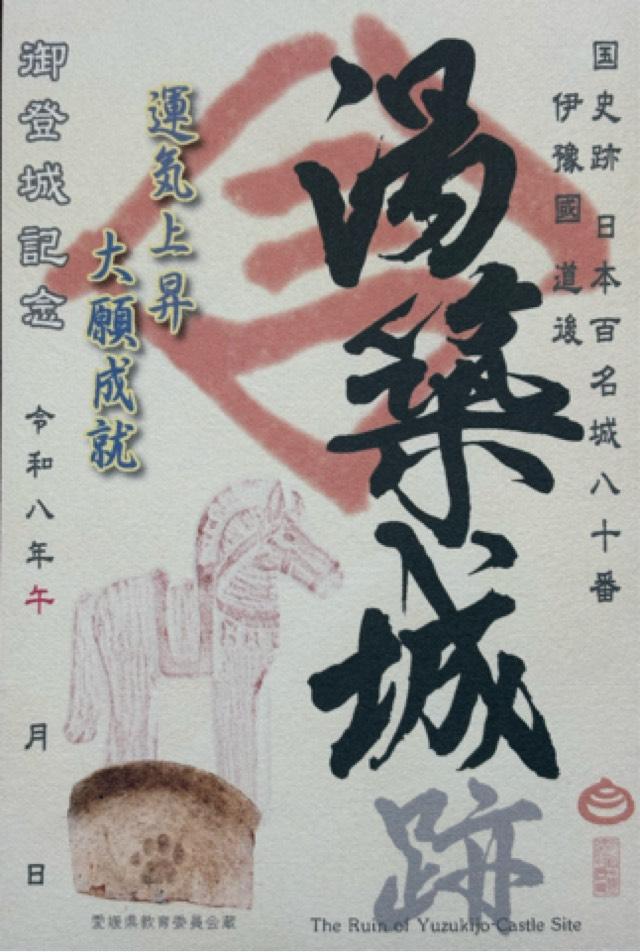 国史跡 日本百名城八十番
伊豫國 道後
湯築城
跡
運気上昇
大願成就
御登城記念
令和八年午
月
日
愛媛県教育委員会蔵
The Ruin of Yuzukijo-Castle Site